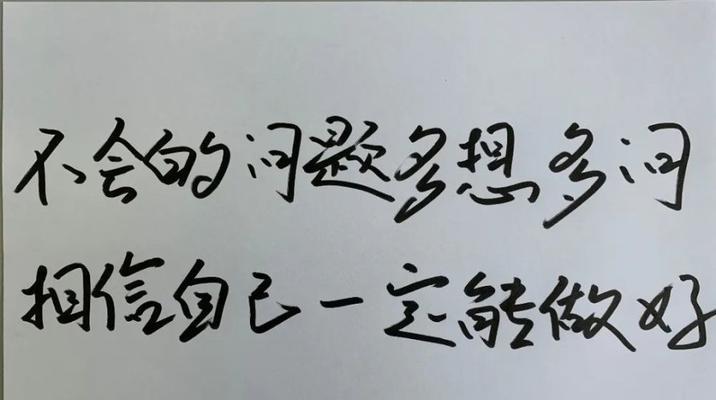 不会的问题多想多问
相信自己一定能做好